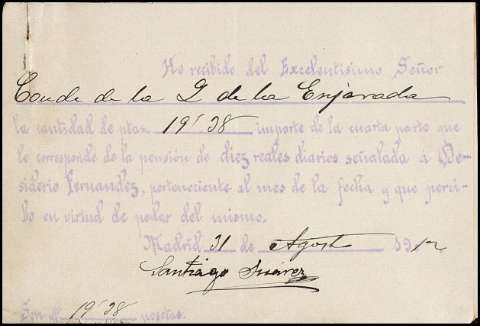 He recibido del Excelentisimo Señor
Conde de la Q de la Enjarada
la cantidad de ptas. 19'38 importe de la cuarta parte que
le corresponde de la pensión de diez reales diarios señalada a De-
siderio Fernandez, perteneciente al mes de la fecha y que perci-
bo en virtud de poder del mismo.
Madrid 31 de Agosto 191
Santiago Suárez
Son # 19'38 pesetas.